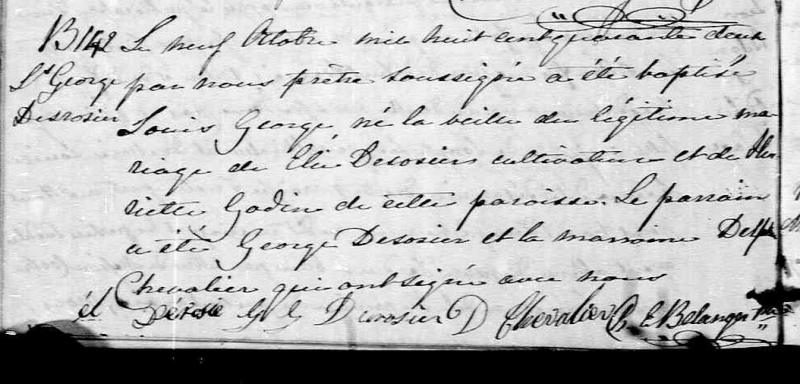 B142 Le neuf Octobre mil huit cent quarante deux
Ls George par nous prêtre soussigné a été baptisé
Desrosier Louis George, né la veille du légitime ma-
riage de Elie Desosiers cultivateur et de Hen
riette Godin de cette paroisse. Le parrain
a été George Desosier et la marraine Delph
Chevalier qui ont signé avec nous
G Durosier D Chevalier E Belanger Ptre